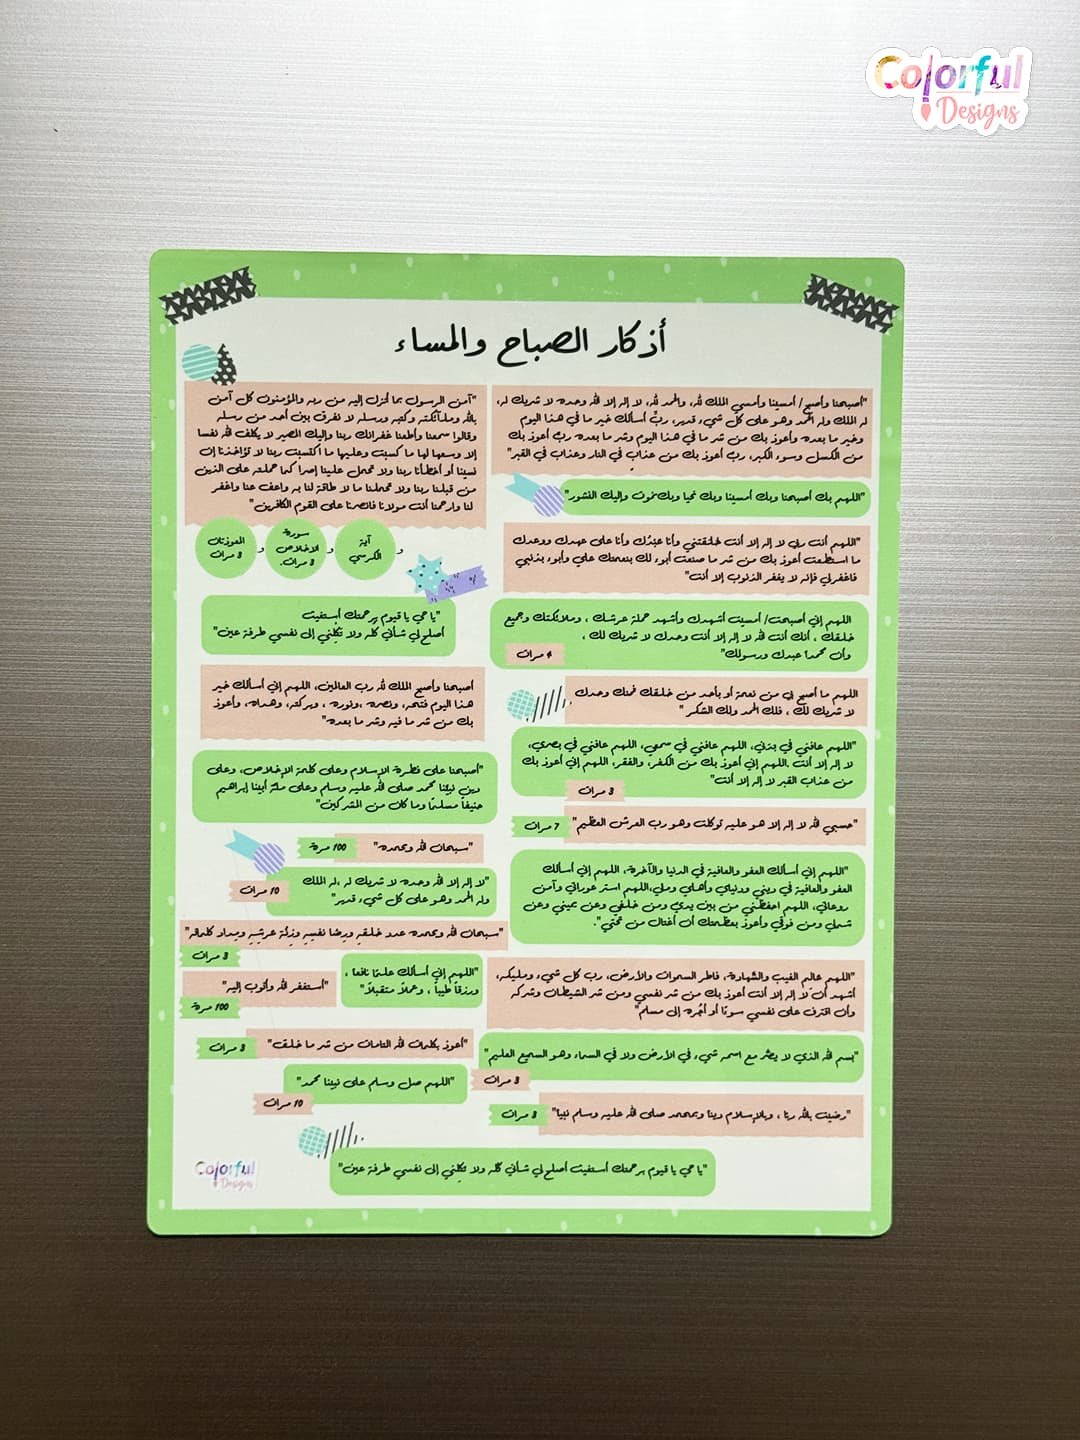 Colorful
Designs
أذكار الصباح والمساء
"أصبحنا وأصبح/ أمسينا وأمسى الملك لله، والحمد لله، لا إله إلا الله وحده لا شريك له،
له الملك وله الحمد وهو على كل شيء قدير، ربِّ أسألك خير ما في هذا اليوم
وخير ما بعده وأعوذ بك من شر ما في هذا اليوم وشر ما بعده رب أعوذ بك
من الكسل وسوء الكبر، رب أعوذ بك من عذاب في النار وعذاب في القبر"
"اللهم بك أصبحنا وبك أمسينا وبك نحيا وبك نموت وإليك النشور"
"اللهم أنت ربي لا إله إلا أنت خلقتني وأنا عبدك وأنا على عهدك ووعدك
ما استطعت أعوذ بك من شر ما صنعت أبوء لك بنعمتك علي وأبوء بذنبي
فاغفرلي فإنه لا يغفر الذنوب إلا أنت"
اللهم إني أصبحت/ أمسيت أشهدك وأشهد حملة عرشك ، وملائكتك وجميع
خلقك ، أنك أنت الله لا إله إلا أنت وحدك لا شريك لك ،
وأن محمدا عبدك ورسولك"
4 مرات
اللهم ما أصبح بي من نعمة أو بأحد من خلقك فمنك وحدك
لا شريك لك ، فلك الحمد ولك الشكر"
"اللهم عافني في بدني، اللهم عافني في سمعي، اللهم عافني في بصري،
لا إله إلا أنت .اللهم إني أعوذ بك من الكفر، والفقر، اللهم إني أعوذ بك
من عذاب القبر لا إله إلا أنت"
3 مرات
"حسبي الله لا إله إلا هو عليه توكلت وهو رب العرش العظيم"
7 مرات
"اللهم إني أسألك العفو والعافية في الدنيا والآخرة، اللهم إني أسألك
العفو والعافية في ديني ودنياي وأهلي ومالي،اللهم استر عوراتي وآمن
روعاتي، اللهم احفظني من بين يدي ومن خلفي وعن يميني وعن
شمالي ومن فوقي وأعوذ بعظمتك أن أغتال من تحتي".
"اللهم عالم الغيب والشهادة، فاطر السموات والأرض، رب كل شيء ومليكه،
أشهد أن لا إله إلا أنت أعوذ بك من شر نفسي ومن شر الشيطان وشركه
وأن اقترف على نفسي سوءًا أو أجُره إلى مسلم"
"بسم الله الذي لا يضر مع اسمه شيء في الأرض ولا في السماء وهو السميع العليم"
3 مرات
"رضيت بالله ربا ، وبالإسلام دينا وبمحمد صلى الله عليه وسلم نبيا"
3 مرات
"آمن الرسول بما أنزل إليه من ربه والمؤمنون كل آمن
بالله وملائكته وكتبه ورسله لا نفرق بين أحد من رسله
وقالوا سمعنا وأطعنا غفرانك ربنا وإليك المصير لا يكلف الله نفسا
إلا وسعها لها ما كسبت وعليها ما اكتسبت ربنا لا تؤاخذنا إن
نسينا أو أخطأنا ربنا ولا تحمل علينا إصرا كما حملته على الذين
من قبلنا ربنا ولا تحملنا ما لا طاقة لنا به واعف عنا واغفر
لنا وارحمنا أنت مولانا فانصرنا على القوم الكافرين"
و
آية
الكرسي
و
سورة
الاخلاص
3 مرات.
و
المعوذتان
3 مرات
"يا حي يا قيوم برحمتك أستغيث
أصلح لي شأني كله ولا تكلني إلى نفسي طرفة عين"
أصبحنا وأصبح الملك لله رب العالمين، اللهم إني أسألك خير
هذا اليوم فتحه، ونصره ،ونوره ، وبركته، وهداه، وأعوذ
بك من شر ما فيه وشر ما بعده"
"أصبحنا على فطرة الإسلام وعلى كلمة الإخلاص، وعلى
دين نبينا محمد صلى الله عليه وسلم وعلى ملة أبينا إبراهيم
حنيفًا مسلمًا وما كان من المشركين"
"سبحان الله وبحمده"
100 مرة
"لا إله إلا الله وحده لا شريك له ،له الملك
وله الحمد وهو على كل شيء قدير"
10 مرات
"سبحان الله وبحمده عدد خلقه ورضا نفسه وزنة عرشه ومداد كلماته"
3 مرات
"اللهم إني أسألك علمًا نافعا ،
ورزقاً طيباً ، وعملاً متقبلاً"
"أستغفر الله وأتوب إليه"
100 مرة
"أعوذ بكلمات الله التامات من شر ما خلق"
3 مرات
"اللهم صل وسلم على نبينا محمد"
10 مرات
"يا حي يا قيوم برحمتك أستغيث أصلح لي شأني كله ولا تكلني إلى نفسي طرفة عين"
Colorful
Designs